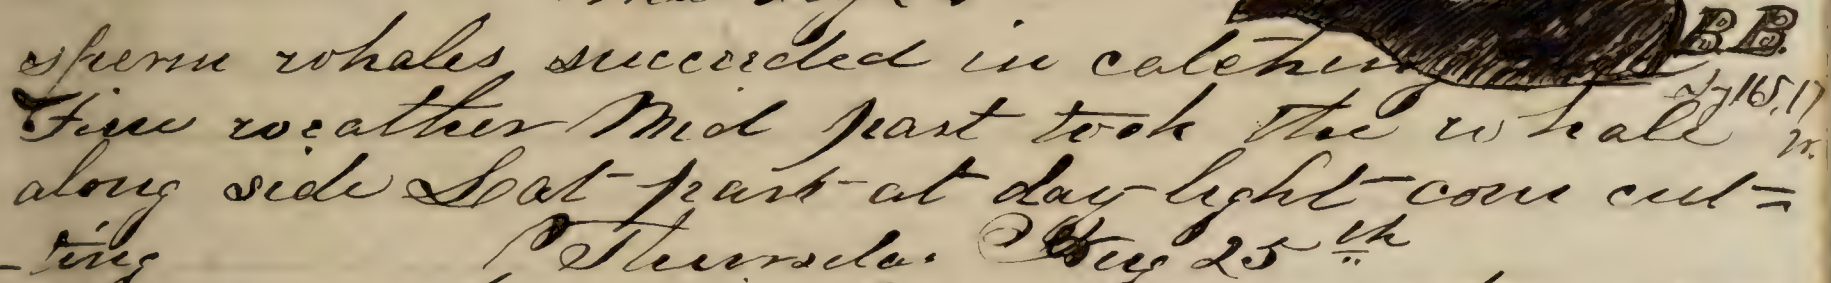 sperm whales succeeded in catching B.B.
Fine weather Mid part took the whale
along side Lat part at day light com cut=
-ting Thursda. Aug 25th